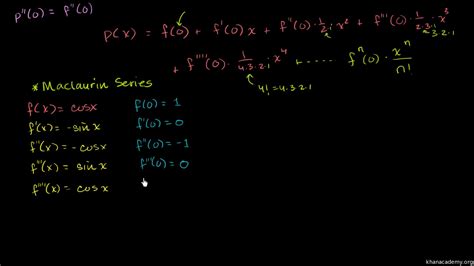 p''(0) = f''(0)
p(x) = f(0) + f'(0)x + f''(0)·1/2·1 x² + f'''(0)·1/2·3·1·x³
3·2·1
+ f''''(0) 1/4·3·2·1 x⁴ + ····· fⁿ(0)·xⁿ/n!
4! = 4·3·2·1
* Maclaurin Series
f(x) = cosx f(0) = 1
f'(x) = -sin x f'(0) = 0
f''(x) = -cosx f''(0) = -1
f'''(x) = sin x f'''(0) = 0
f''''(x) = cosx
khanacademy.org